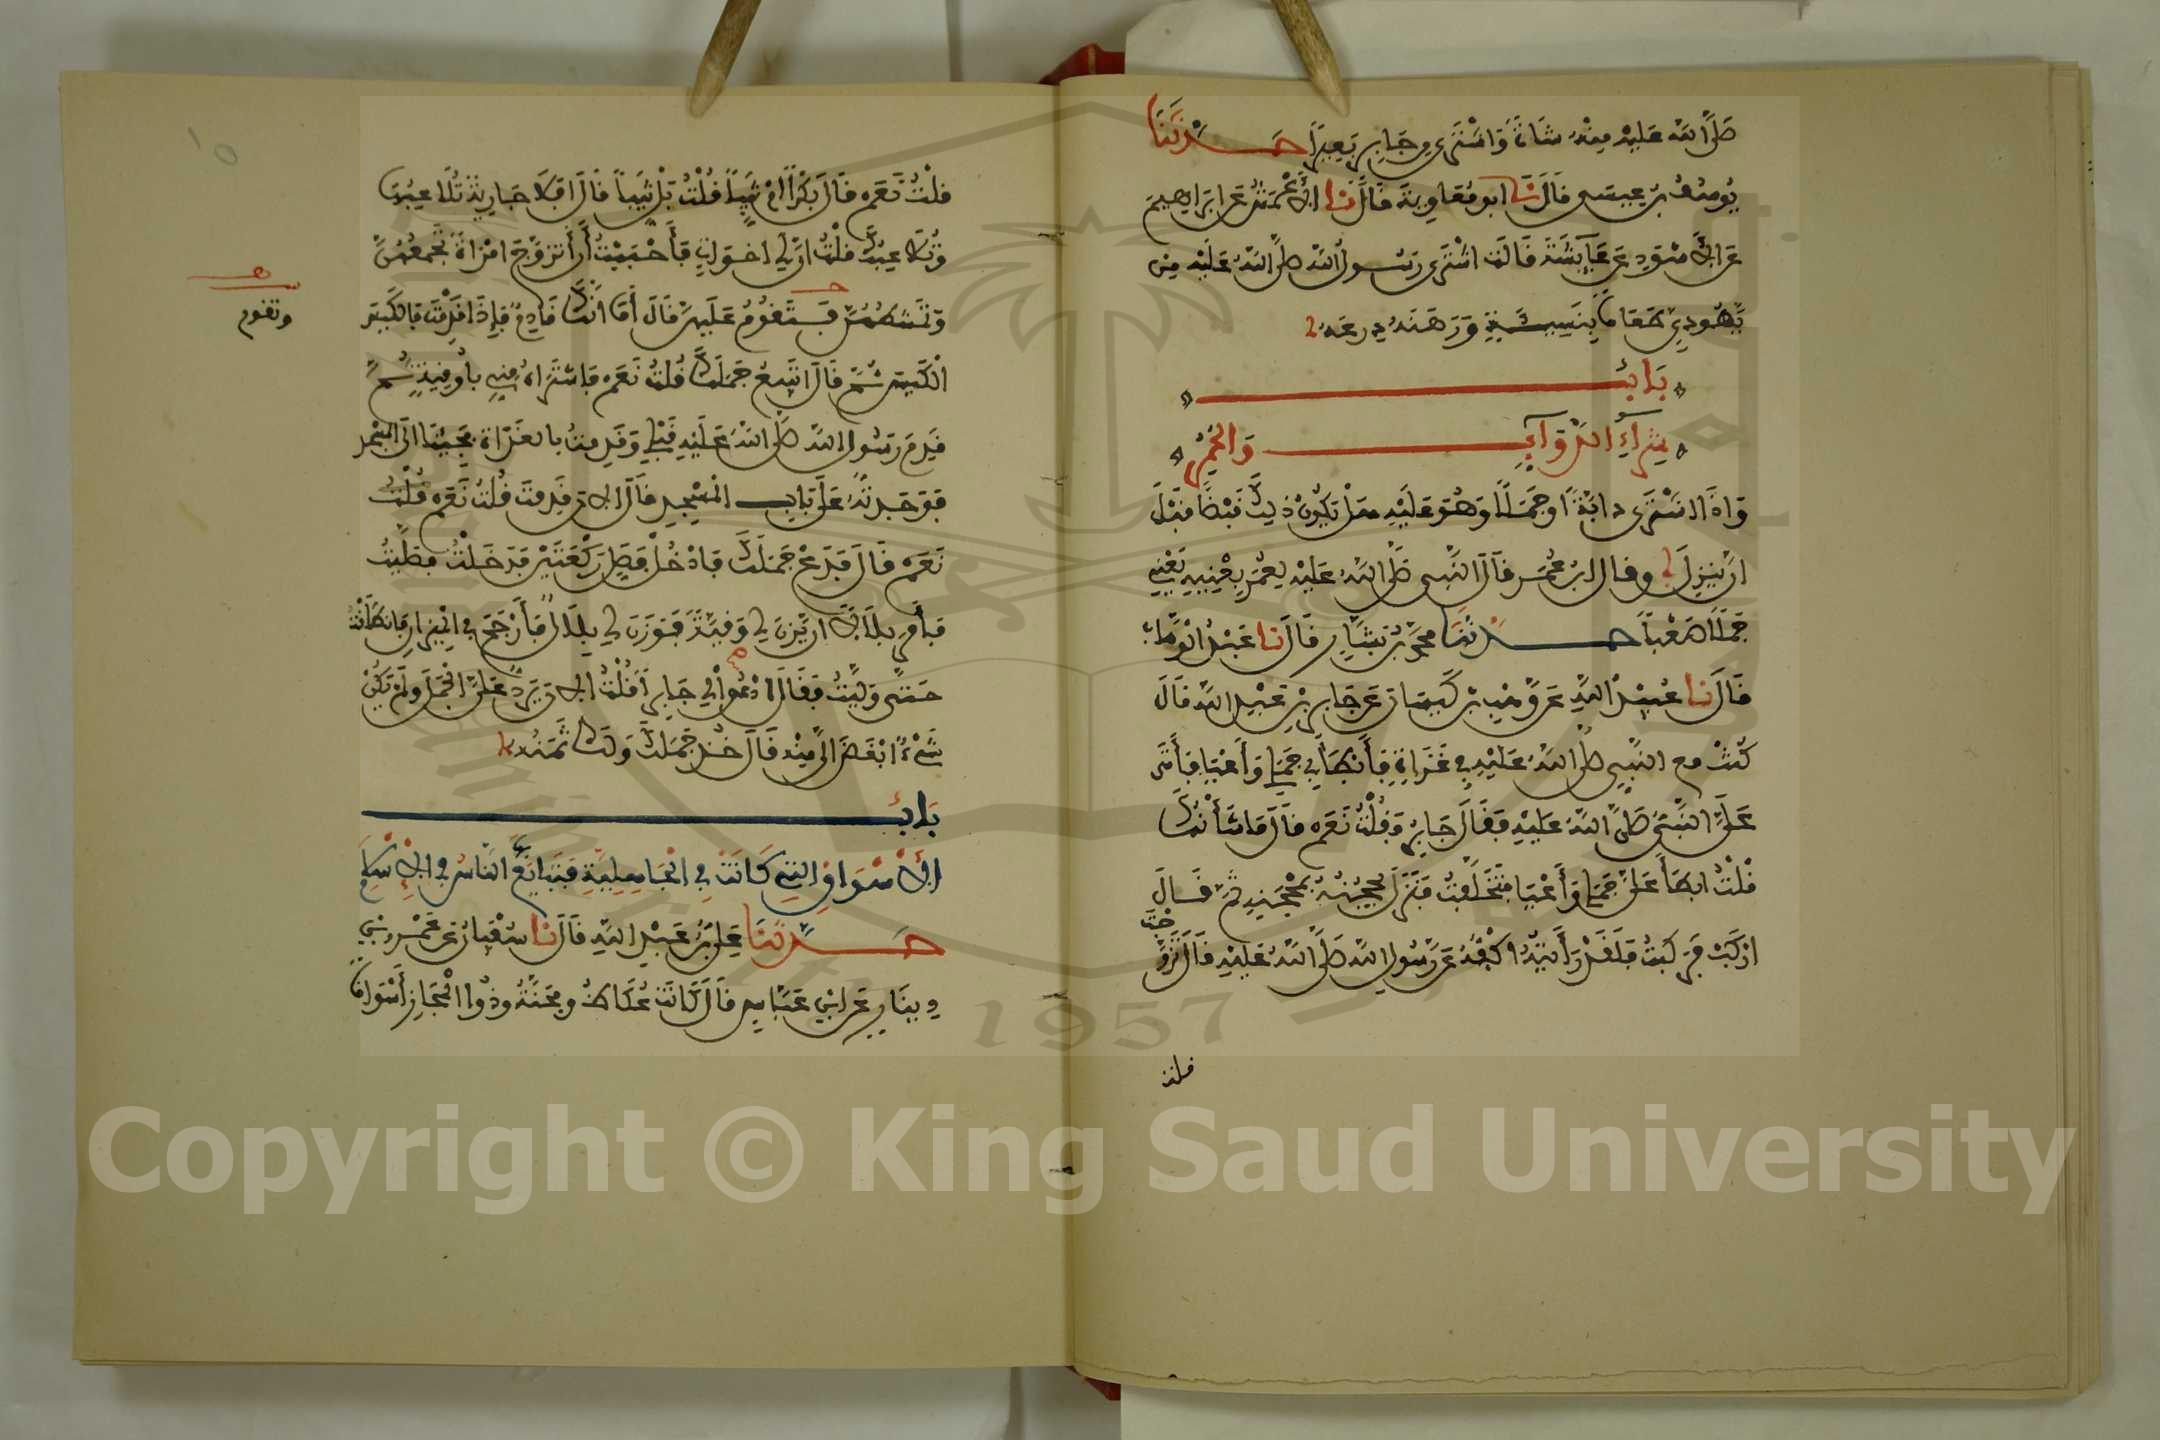 صَلَّى اللَّهُ عَلَيْهِ مِنْهُ شَاةً وَاشْتَرَى مِن جَابِرٍ بَعِيرًا حَدَّثَنَا
يُوسُفُ بن عِيسَى قَالَ نَا أبو مُعَاوِيَةَ قَالَ نَا الأَعْمَشُ عَن إبْرَاهِيمَ
عَن الأَسْوَدِ عَن عَائِشَةَ قَالَت اشْتَرَى رَسُولُ اللَّهِ صَلَّى اللَّهُ عَلَيْهِ مِن
يَهُودِيٍّ طَعَامًا بِنَسِيئَةٍ وَرَهَنَهُ دِرعَهُ
بَابُ
شِرَاءِ الدَّوَابِّ وَالحُمُرِ
وَإذَا اشْتَرَى دَابَّةً أو جَمَلًا وَهُوَ عَلَيْهِ هَلْ يَكُونُ ذَلِكَ قَبْضًا قَبْلَ
أن يَنْزِلَ وقال ابن عُمَر قَالَ النَّبِي صَلَّى اللَّهُ عَلَيْهِ لِعُمَرَ بِعْنِيهِ يَعْنِي
جَمَلًا صَعْبًا حَدَّثَنَا مُحَمَّد بْنُ بَشَّارٍ قَالَ نا عَبْدُ الوَهَّابِ
قَالَ نا عُبَيْدُ اللَّهِ عَن وَهْبِ بن كَيْسَانَ عَن جَابِرِ بْنِ عَبْدِ اللَّهِ قَالَ
كُنْتُ مع النَّبِي صَلَّى اللَّهُ عَلَيْهِ فِي غَزَاةٍ فَأَبْطَأَ بِي جَمَلِي وَأَعْيَا فَأَتَى
عَلَيَّ النَّبِيُّ صَلَّى اللَّهُ عَلَيْهِ فَقَالَ جَابِرٌ فَقُلْتُ نَعَم قَالَ مَا شَأْنُكَ
قُلْتُ أبْطَأَ عَلَيَّ جَمَلِي وَأَعْيَا فَتَخَلَّفْتُ فَنَزَلَ يَحْجُنُهُ بِمِحْجَنِهِ ثُمَّ قَالَ
ارْكَبْ فَرَكِبْتُ فَلَقَدْ رَأَيْتُهُ أَكُفُّهُ عَن رَسُولِ اللَّهِ صَلَّى اللَّهُ عَلَيْهِ قَالَ تَزَوَّجْتَ
قلت
قُلْتُ نَعَم قَالَ بِكْرًا أمْ ثَيِّبًا قُلْتُ بَلْ ثَيِّبًا قَالَ أفَلَا جَارِيَةً تُلَاعِبُهَا
وَتُلَاعِبُكَ قُلْتُ إنَّ لِي أخَوَاتٍ فَأَحْبَبْتُ أَنْ أَتَزَوَّجَ امْرَأَةً تَجْمَعُهُنَّ
وَتَمْشُطُهُنَّ فَتَقُومُ عَلَيْهِنَّ قَالَ أَمَا إنَّكَ قَادِمٌ فَإِذَا قَدِمْتَ فَالكَيْسَ
الْكَيْسَ ثُمَّ قَالَ أتَبِيعُ جَمَلَكَ قُلْتُ نَعَم فَاشْتَرَاهُ مِنِّي بِأُوقِيَّةٍ ثُمَّ
قَدِمَ رَسُولُ اللَّهِ صَلَّى اللَّهُ عَلَيْهِ قَبْلِي وَقَدِمْتُ بِالغَدَاةِ فَجِئْنَا إلَى المَسْجِدِ
فَوَجَدتُهُ عَلَى بَابِ الْمَسْجِدِ قَالَ الآنَ قَدِمْتَ قُلْتُ نَعَم قُلْتُ
نَعَم قَالَ فَدَعْ جَمَلَكَ فَادْخُلْ فَصَلِّ رَكْعَتَيْنِ فَدَخَلْتُ فَصَلَّيْتُ
فَأَمَرَ بِلَالًا أن يَزِنَ لِي وَقِيَّةً فَوَزَنَ لِي بِلَالٌ فَأَرْجَحَ فِي الْمِيزَانِ فَانطَلَقْتُ
حَتَّى وَلَّيْتُ فَقَالَ ادْعُوا لِي جَابِرًا قُلْتُ الآنَ يَرُدُّ عَلَيَّ الجَمَلَ وَلَمْ يَكُنْ
شَيْءٌ أبْغَضَ إلَيَّ مِنْهُ قَالَ خُذْ جَمَلَكَ وَلَكَ ثَمَنُهُ
بَابُ
الأَسْوَاقِ الَّتِي كَانَتْ فِي الْجَاهِلِيَّةِ فَتَبَايَعَ النَّاسُ فِي الإِسْلَامِ
حَدَّثَنَا عَلِيُّ بْنُ عَبْدِ اللَّهِ قَالَ نا سُفْيَانُ عَن عَمْرِو بْنِ
دِينَارٍ عَن ابْنِ عَبَّاسٍ قَالَ كَانَتْ عُكَاظُ ومَجَنَّةُ وَذُوا الْمَجَازِ أَسْوَاقًا
وتقوم
١٥
Copyright © King Saud University
1957